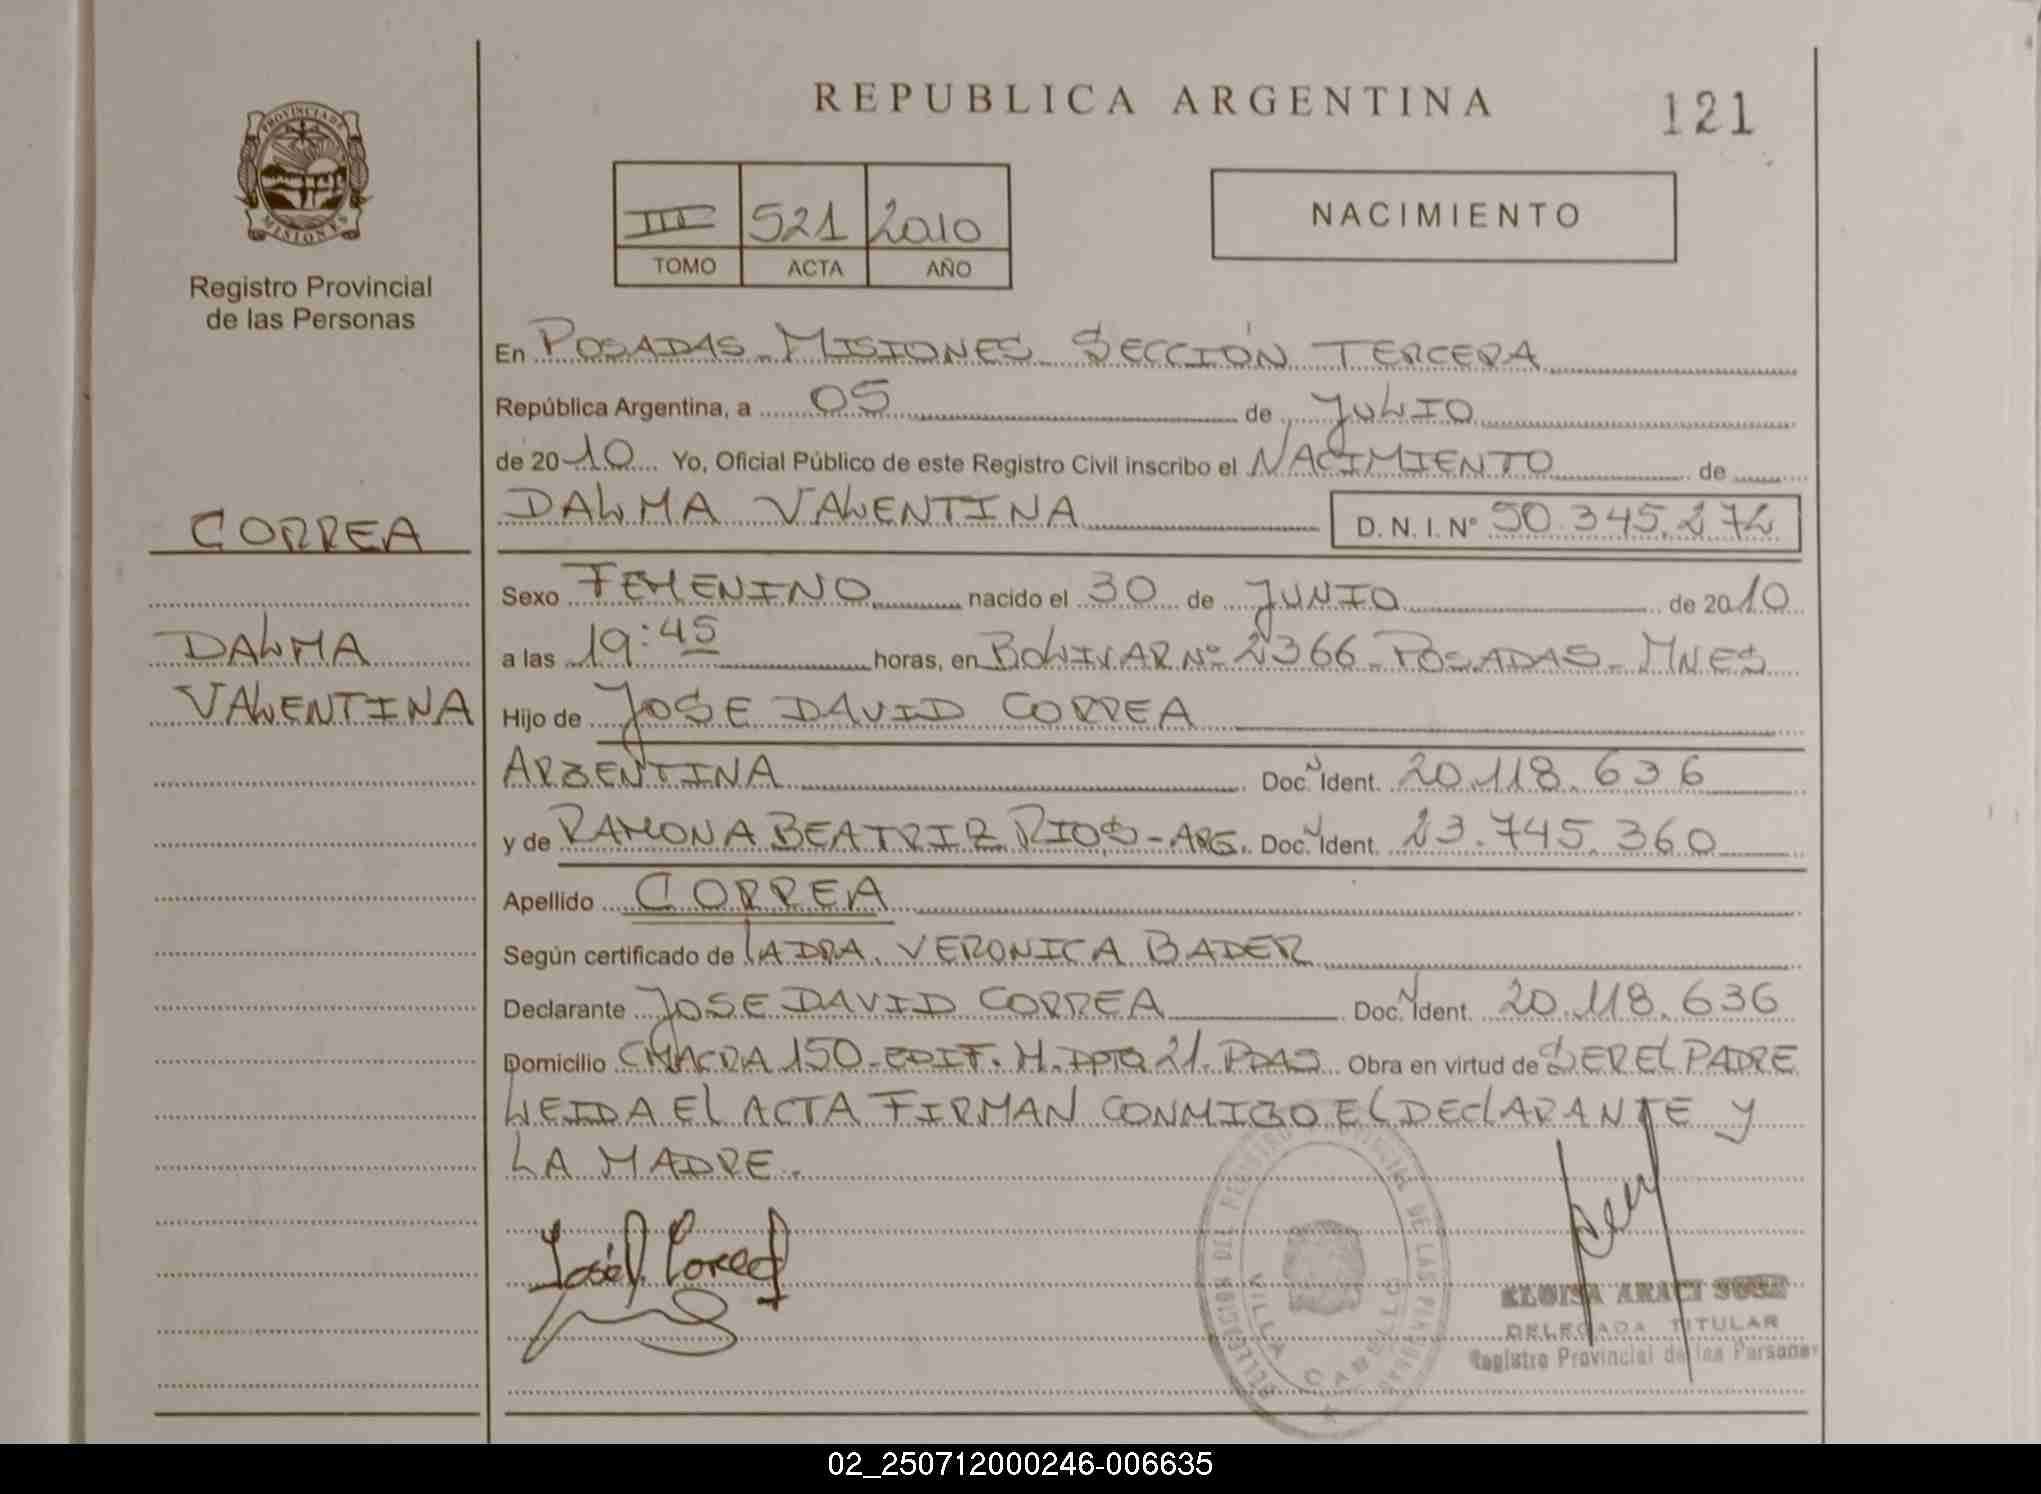 REPUBLICA ARGENTINA
121
PROVINCIA DE
MISIONES
Registro Provincial
de las Personas
III 521 2010
TOMO ACTA AÑO
NACIMIENTO
En POSADAS - MISIONES - SECCIÓN TERCERA
República Argentina, a 05 de JULIO
de 2010 Yo, Oficial Público de este Registro Civil inscribo el NACIMIENTO de
DALMA VALENTINA D.N.I. Nº 50.345.272
CORREA
Sexo FEMENINO nacido el 30 de JUNIO de 2010
DALMA
a las 19:45 horas, en BOLIVAR Nº 2366 - POSADAS - MNES
VALENTINA
Hijo de JOSE DAVID CORREA
ARGENTINA Doc. Ident. 20.118.636
y de RAMONA BEATRIZ RIOS - ARG. Doc. Ident. 23.745.360
Apellido CORREA
Según certificado de LA DRA. VERONICA BADER
Declarante JOSE DAVID CORREA Doc. Ident. 20.118.636
Domicilio CHACRA 150 - EDIF. H. DPTO 21 - PDAS Obra en virtud de SER EL PADRE
LEIDA EL ACTA FIRMAN CONMIGO EL DECLARANTE Y
LA MADRE.
José D. Correa
DELEGACION DEL REGISTRO PROVINCIAL DE LAS PERSONAS
VILLA CABELLO
ELOISA ARACI
DELEGADA TITULAR
Registro Provincial de las Personas
02_250712000246-006635